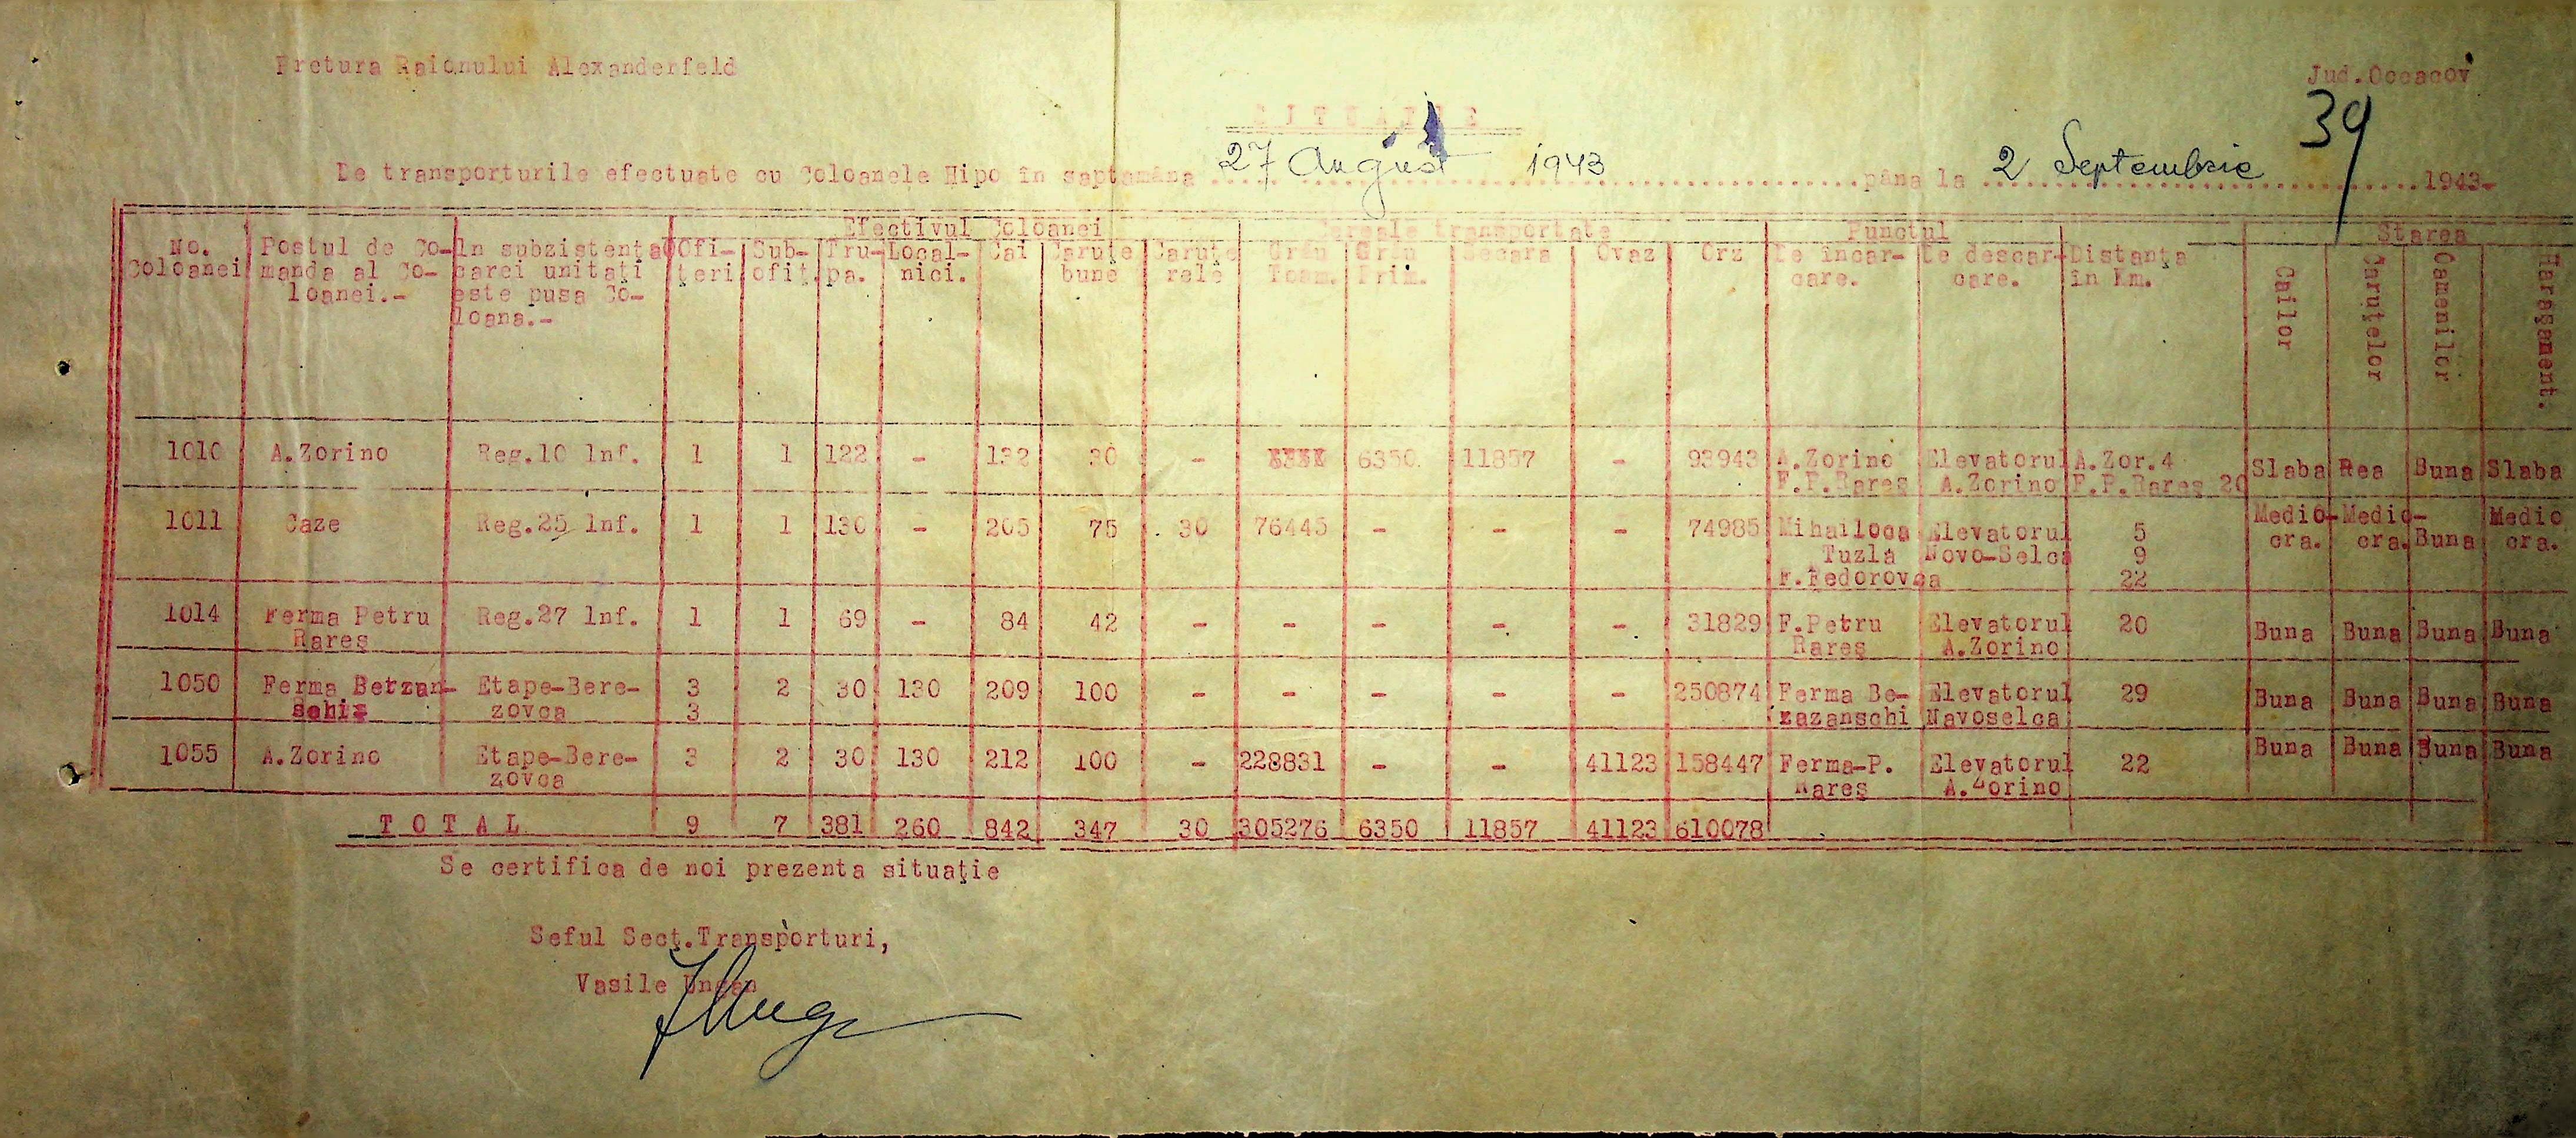 Pretura Raionului Alexanderfeld
Jud.Oceacov
39
SITUAȚIE
De transporturile efectuate cu Coloanele Hipo în saptamâna 27 August 1943 pâna la 2 Septembrie 1943-
Efectivul Coloanei Cereale transportate Punctul Starea
No. Coloanei Postul de Comanda al Coloanei.- In subzistența carei unitați este pusa Coloana.- Ofițeri Subofiț. Trupa. Localnici. Cai Caruțe bune Caruțe rele Grâu Toam. Grâu Prim. Secara Ovaz Orz De încarcare. De descarcare. Distanța în Km. Cailor Caruțelor Oamenilor Harașament.
1010 A.Zorino Reg.10 Inf. 1 1 122 - 132 30 - 6350 11857 - 93943 A.Zorino Elevatorul A.Zor.4 Slaba Rea Buna Slaba
F.P.Rareș A.Zorino F.P.Rareș 20
1011 Caze Reg.25 Inf. 1 1 130 - 205 75 30 76445 - - - 74985 Mihailoca Elevatorul 5 Medio- Medio- Buna Medio
Tuzla Novo-Selca 9 cra. cra. cra.
F.Fedorovca 22
1014 Ferma Petru Reg.27 Inf. 1 1 69 - 84 42 - - - - - 31829 F.Petru Elevatorul 20 Buna Buna Buna Buna
Rareș Rareș A.Zorino
1050 Ferma Betzan- Etape-Bere- 3 2 30 130 209 100 - - - - 250874 Ferma Be- Elevatorul 29 Buna Buna Buna Buna
schi zovca 3 zazanschi Navoselca
1055 A.Zorino Etape-Bere- 3 2 30 130 212 100 - 228831 - - 41123 158447 Ferma-P. Elevatorul 22 Buna Buna Buna Buna
zovca Rareș A.Zorino
TOTAL 9 7 381 260 842 347 30 305276 6350 11857 41123 610078
Se certifica de noi prezenta situație
Seful Secț.Transporturi,
Vasile Ungan